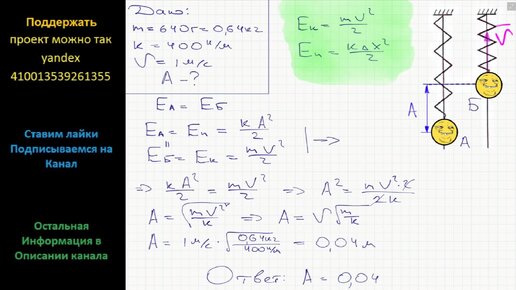 Поддержать
проект можно так
yandex
410013539261355
Ставим лайки
Подписываемся на
Канал
Остальная
Информация в
Описании канала
Дано:
m = 640г = 0,64кг
k = 400 Н/м
V = 1 м/с
A - ?
Eк = mV²/2
Eп = kΔx²/2
EА = EБ
EА = Eп = kA²/2
EБ = Eк = mV²/2
=> kA²/2 = mV²/2 => A² = mV²·2/2k
A = √(mV²/k) => A = V√(m/k)
A = 1м/с · √(0,64кг/400 Н/м) = 0,04 м
Ответ: A = 0,04
V
A
Б
A